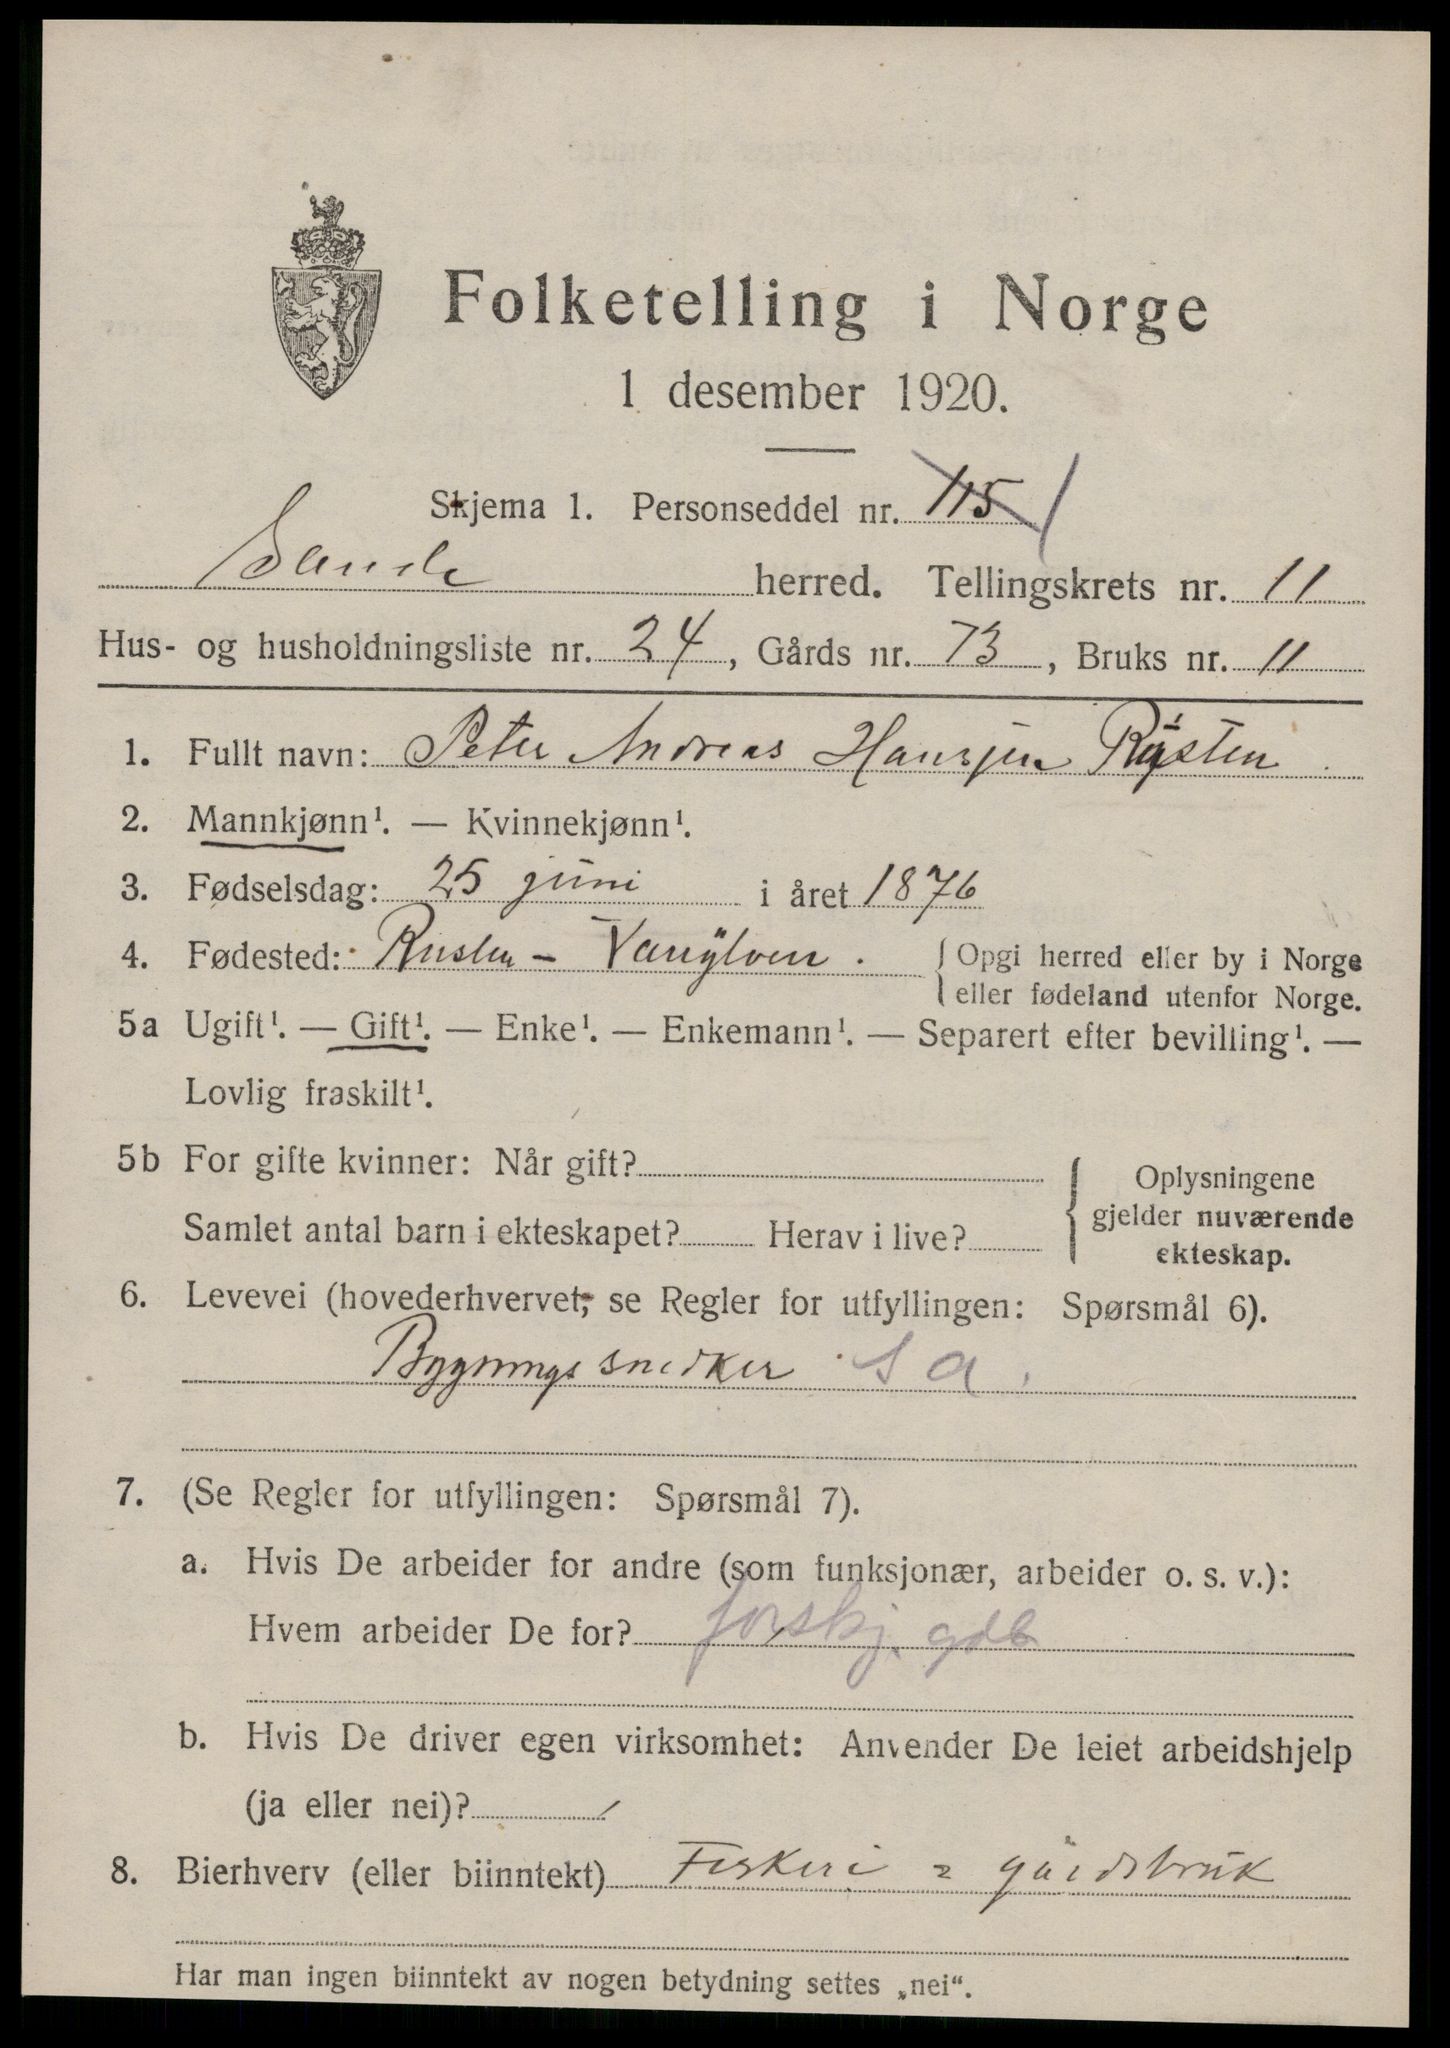 Folketelling i Norge
1 desember 1920.
Skjema 1. Personseddel nr. 115 1
Sande herred. Tellingskrets nr. 11
Hus- og husholdningsliste nr. 24, Gårds nr. 73, Bruks nr. 11
1. Fullt navn: Peter Andreas Hansjen
2. Mannkjønn¹. — Kvinnekjønn¹.
3. Fødselsdag: 25 juni i året 1876
4. Fødested: Rusten - Vanylven. Opgi herred eller by i Norge
eller fødeland utenfor Norge.
5a Ugift¹. — Gift¹. — Enke¹. — Enkemann¹. — Separert efter bevilling¹. —
Lovlig fraskilt¹.
5b For gifte kvinner: Når gift?
Samlet antal barn i ekteskapet? Herav i live?
Oplysningene
gjelder nuværende
ekteskap.
6. Levevei (hovederhvervet; se Regler for utfyllingen: Spørsmål 6).
Bygningssnedker s a.
7. (Se Regler for utfyllingen: Spørsmål 7).
a. Hvis De arbeider for andre (som funksjonær, arbeider o. s. v.):
Hvem arbeider De for? forskj. gdb
b. Hvis De driver egen virksomhet: Anvender De leiet arbeidshjelp
(ja eller nei)?
8. Bierhverv (eller biinntekt) Fiskeri = gårdsbruk
Har man ingen biinntekt av nogen betydning settes „nei“.